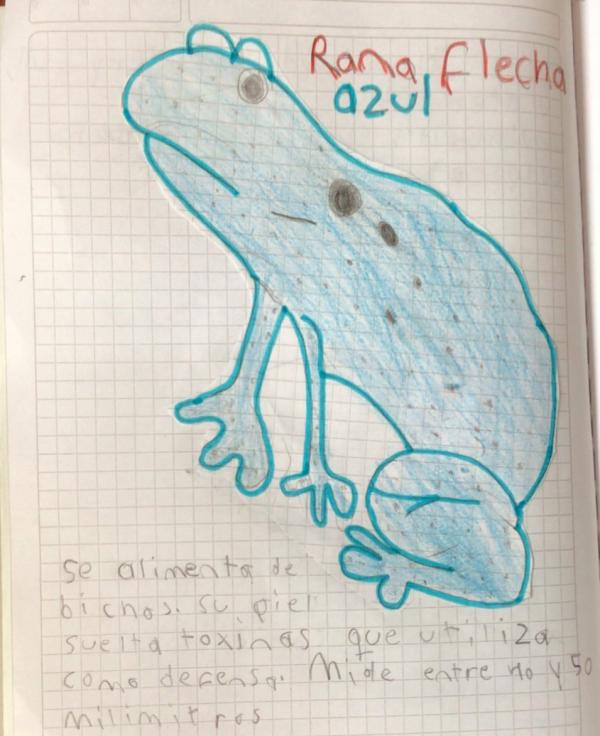 Rana flecha
azul
se alimenta de
bichos. su piel
suelta toxinas que utiliza
como decensa. Mide entre 40 y 50
milimitros